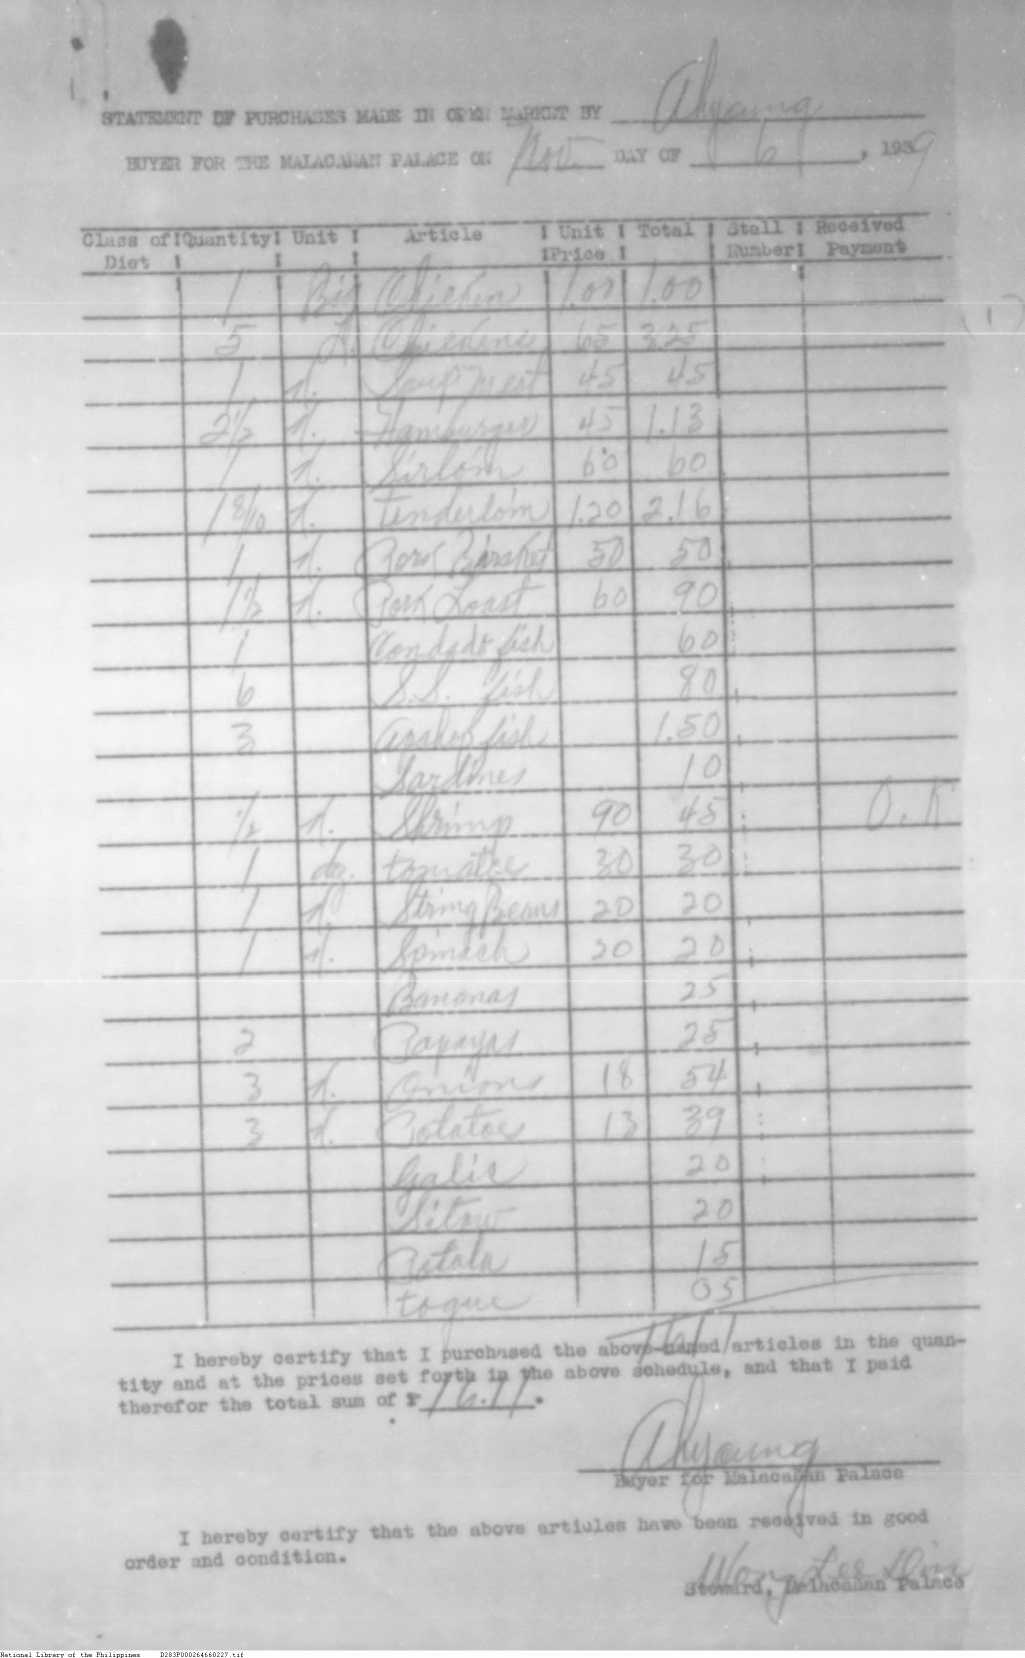 STATEMENT OF PURCHASES MADE IN OPEN MARKET BY Ahyoung
BUYER FOR THE MALACAÑAN PALACE ON Nov. DAY OF 6, 1939
Class of Diet Quantity Unit Article Unit Price Total Stall Number Received Payment
1 Big Chicken 1.00 1.00
5 Chickens 65 3.25
1 k. Soup Meat 45 45
2 1/2 k. Hamburger 45 1.13
1 k. Sirloin 60 60
1 8/10 k. Tenderloin 1.20 2.16
1 k. Pork 50 50
1 1/2 k. Pork Loast 60 90
1 fish 60
6 S.S. fish 80
3 fish 1.50
Sardines 10
1/2 k. Shrimp 90 45 O.K
1 dz. tomatoe 30 30
1 k String Beans 20 20
1 k. Spinach 20 20
Bananas 25
2 Papayas 25
3 k. Onions 18 54
3 k. Potatoes 13 39
Galic 20
Sitow 20
Patola 15
togue 05
I hereby certify that I purchased the above-named articles in the quan-
tity and at the prices set forth in the above schedule, and that I paid
therefor the total sum of ₱ 16.17.
Ahyoung
Buyer for Malacañan Palace
I hereby certify that the above articles have been received in good
order and condition.
Wong
Steward, Malacañan Palace
National Library of the Philippines D283P000264660227.tif